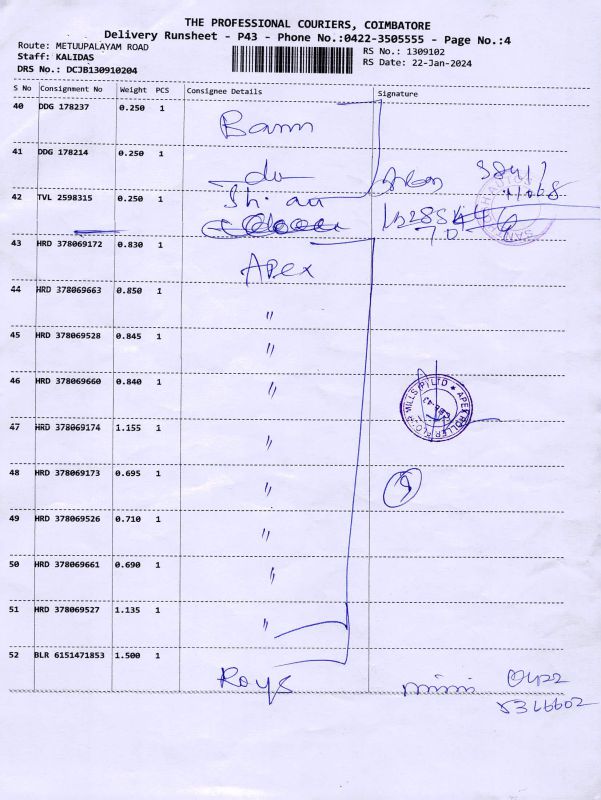 THE PROFESSIONAL COURIERS, COIMBATORE
Delivery Runsheet - P43 - Phone No.:0422-3505555 - Page No.:4
Route: METUUPALAYAM ROAD
RS No.: 1309102
Staff: KALIDAS
RS Date: 22-Jan-2024
DRS No.: DCJB130910204
S No Consignment No Weight PCS Consignee Details Signature
40 DDG 178237 0.250 1
41 DDG 178214 0.250 1
do
42 TVL 2598315 0.250 1
43 HRD 378069172 0.830 1
Apex
44 HRD 378069663 0.850 1
"
45 HRD 378069528 0.845 1
"
46 HRD 378069660 0.840 1
"
APEX ROLLER FLOUR MILLS P LTD
47 HRD 378069174 1.155 1
"
48 HRD 378069173 0.695 1
"
49 HRD 378069526 0.710 1
"
50 HRD 378069661 0.690 1
"
51 HRD 378069527 1.135 1
"
52 BLR 6151471853 1.500 1
Roys